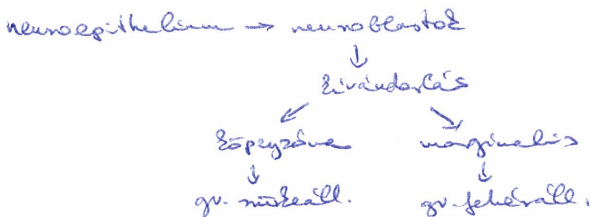 neuroepithelium → neuroblastok
↓
kivándorlás
↙ ↘
köpenyzóna marginalis
↓ ↓
gv. szürkeáll. gv. fehéráll.